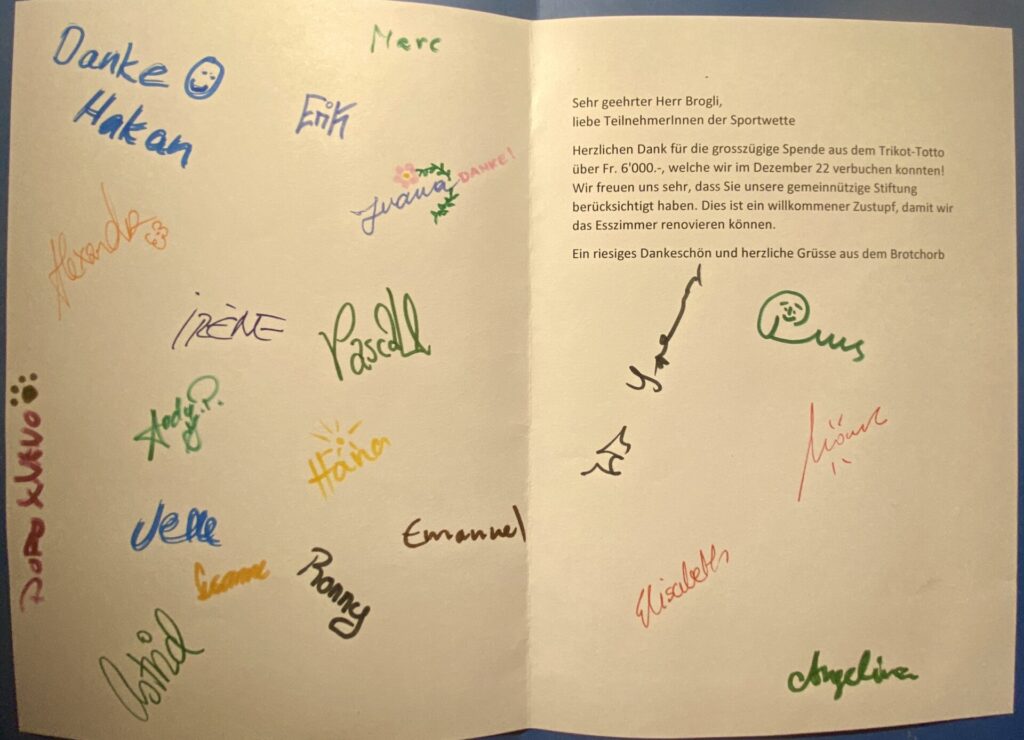 Danke
Hakan
Marc
Erik
DANKE!
IRÈNE
Pascal
Andy.P.
Hana
Jelle
Emanuel
Ronny
Astrid
Sehr geehrter Herr Brogli,
liebe TeilnehmerInnen der Sportwette
Herzlichen Dank für die grosszügige Spende aus dem Trikot-Totto
über Fr. 6'000.-, welche wir im Dezember 22 verbuchen konnten!
Wir freuen uns sehr, dass Sie unsere gemeinnützige Stiftung
berücksichtigt haben. Dies ist ein willkommener Zustupf, damit wir
das Esszimmer renovieren können.
Ein riesiges Dankeschön und herzliche Grüsse aus dem Brotchorb
Elisabeth
Angelina